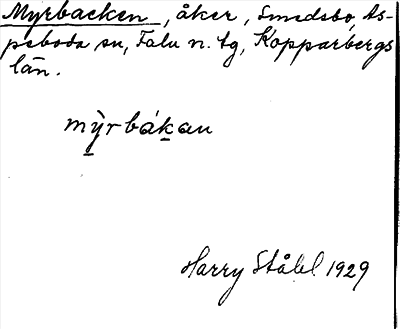 Myrbacken, åker, Smedsbo, As-
peboda sn, Falu n. tg, Kopparbergs
län.
mỳrbákan
Harry Ståhl 1929